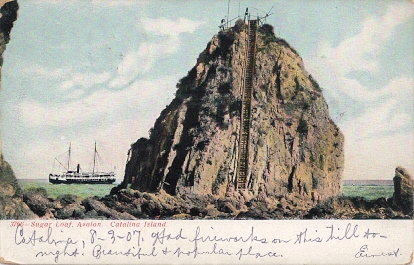 3706 - Sugar Loaf, Avalon. Catalina Island
Catalra, 8-3-07. Had fireworks on this hill to-
night. Beautiful & popular place.
Ernest.